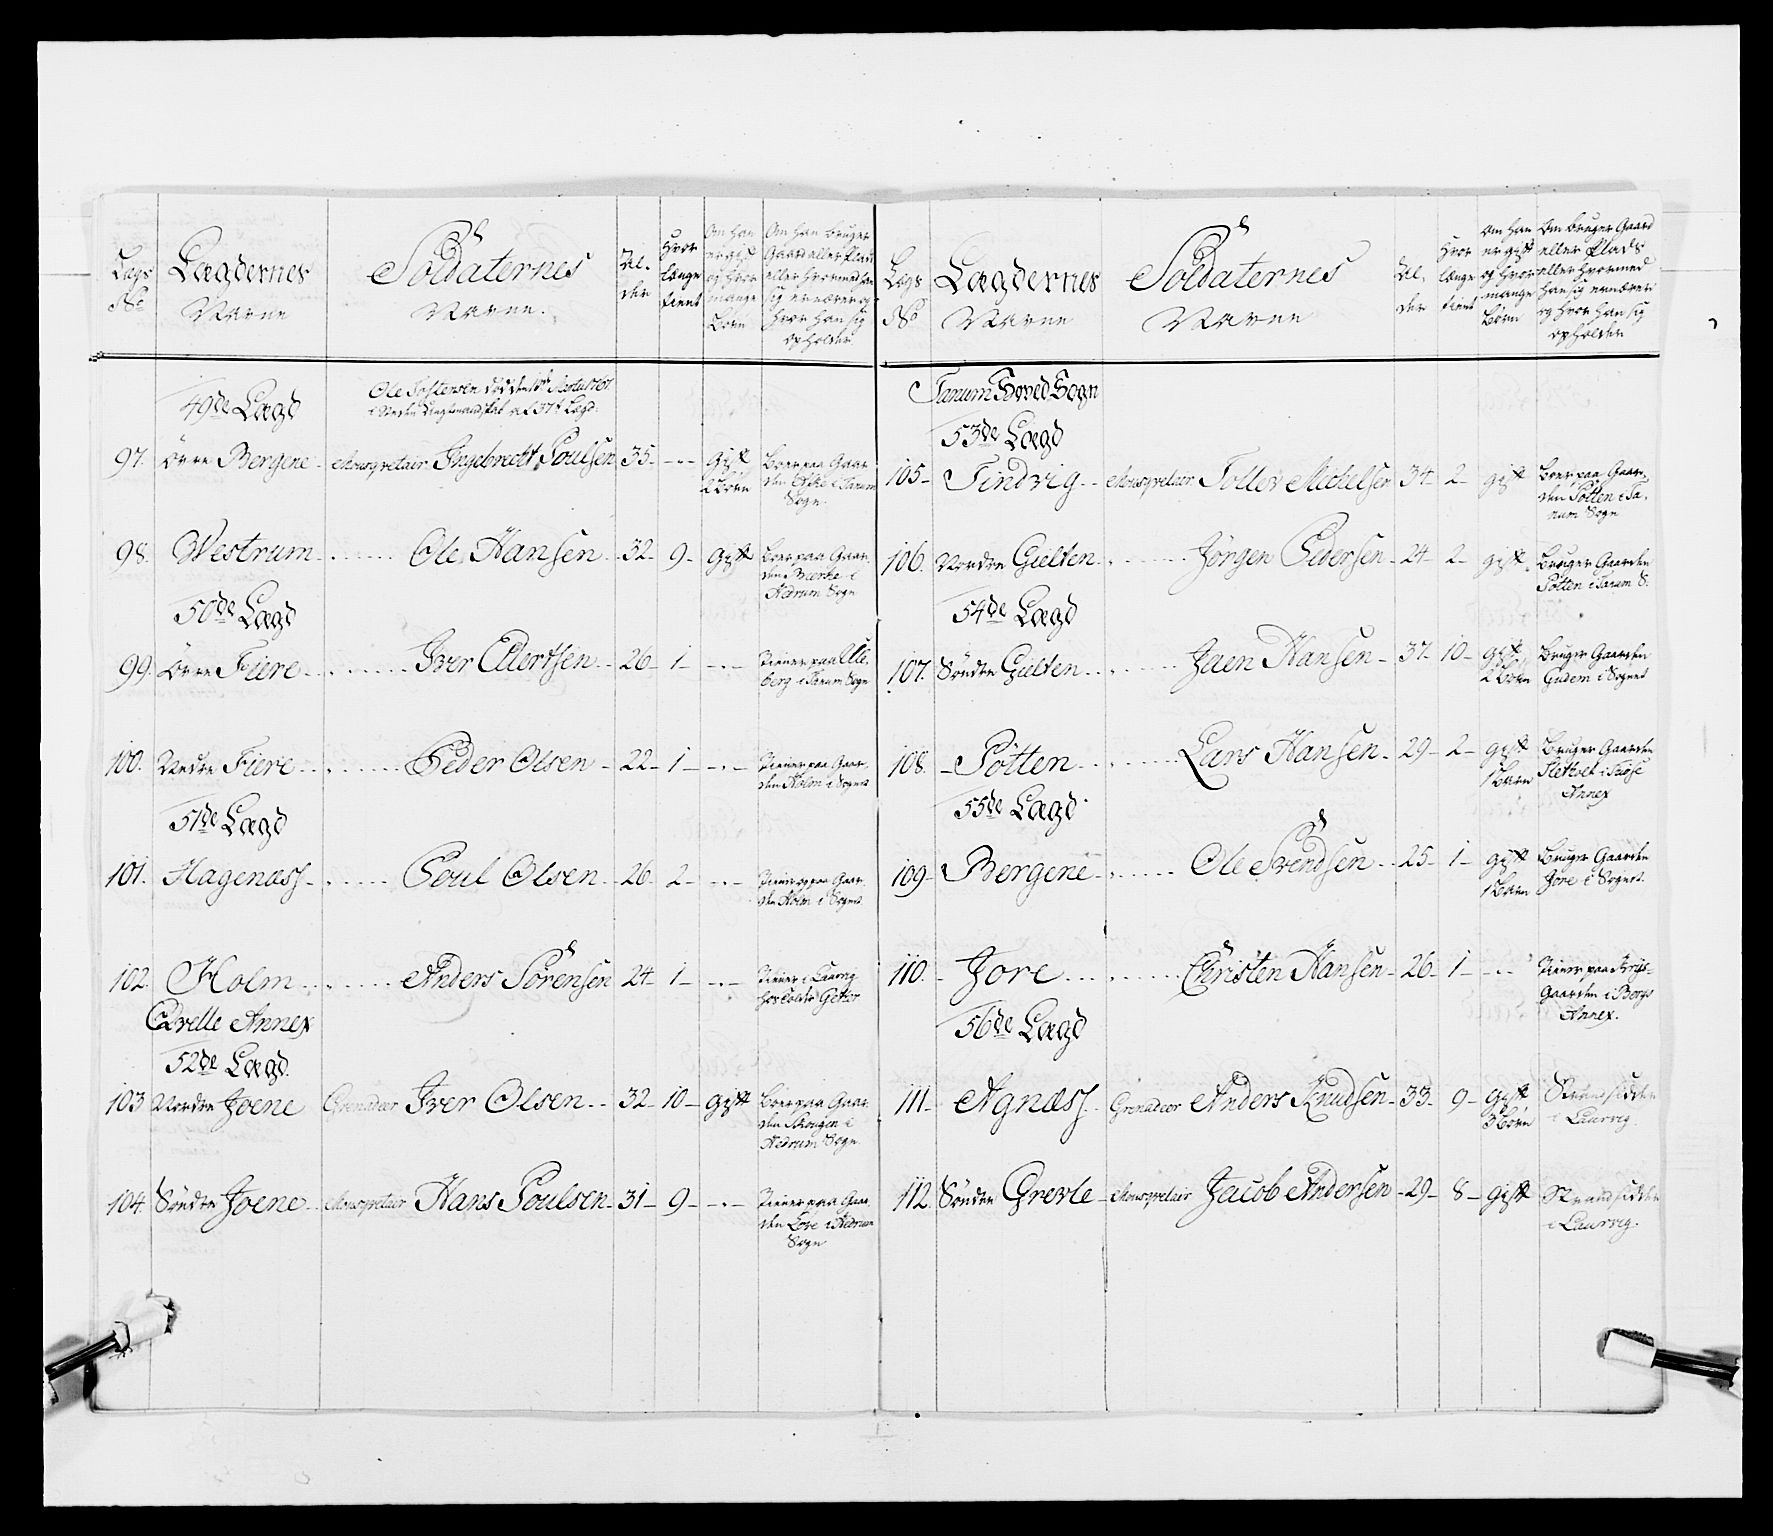 Lægs
No
Lægdernes
Navne
Soldaternes
Navne.
Al-
der
Hvor
længe
tient
Om han
er gift
og hvor
mange
Børn
Om han bruger
Gaard eller Plads
eller hvormed han
sig ernærer og
hvor han sig
opholder
49de Lægd
97. Øvre Bergene - Mousqvetair Ingebrecht Poulsen 35 - gift Boer paa Gaar
2 Børn den i Tanum
Sogn.
98. Westrum Ole Hansen 32 - 9 - gift Boer paa Gaar
den i
Hedrum Sogn
50de Lægd
99. Øvre Fiere Iver Ellertsen 26 - 1 - Tiener paa
berg i Tanum Sogn
100. Nedre Fiere Peder Olsen - 22 - 1 - Tiener paa Gaar
den Holm i Sognet
51de Lægd
101. Hagenæss Poul Olsen 26 - 2 - Tiener paa Gaar
den Holm i Sognet
102. Holm Anders Sörensen 24 - 1 - Tiener i Laurvig
hos
Qvelle Annex
52de Lægd
103 Nordre Joene Grenadeer Iver Olsen 32 - 10 - gift Boer paa Gaar
den Skougen i
Hedrum Sogn
104 Søndre Joene Mousqvetair Hans Poulsen 31 - 9 - Tiener paa Gaar
den i Hedrum
Sogn
Lægs
No
Lægdernes
Navne
Soldaternes
Navne
Al-
der
Hvor
længe
tient
Om han
er gift
og hvor
mange
Børn
Om bruger Gaard
eller Plads
eller hvormed
han sig ernærer
og hvor han sig
opholder
Tanum Hoved Sogn
53de Lægd
105 - Tindvig Mousqvetair Toller Michelsen 34 - 2 - gift Boer paa Gaar-
den Pötten i Ta-
num Sogn
106. Nordre Guelten Jörgen Pedersen - 24 - 2 - gift Bruger Gaarden
Pötten i Tanum S:
54de Lægd
107. Søndre Guelten Jaen Hansen - 37 - 10 - gift Bruger Gaarden
2 Børn i Sognet
108. Pötten Lars Hansen - 29 - 2 - gift Bruger Gaarden
1 Barn
Annex
55de Lægd
109 - Bergene Ole Svendsen 25 - 1 - gift Bruger Gaarden
1 Barn Jore i Sognet
110. Jore Christen Hansen - 26 - 1 - Tiener paa
Gaarden i Bergs
Annex.
56de Lægd
111 - Agnæss Grenadeer Anders Knudsen - 33 - 9 - gift
3 Børn i Laurvig
112. Søndre Grevle - Mousqvetair Jacob Andersen - 29 - 8 - gift
i Laurvig.